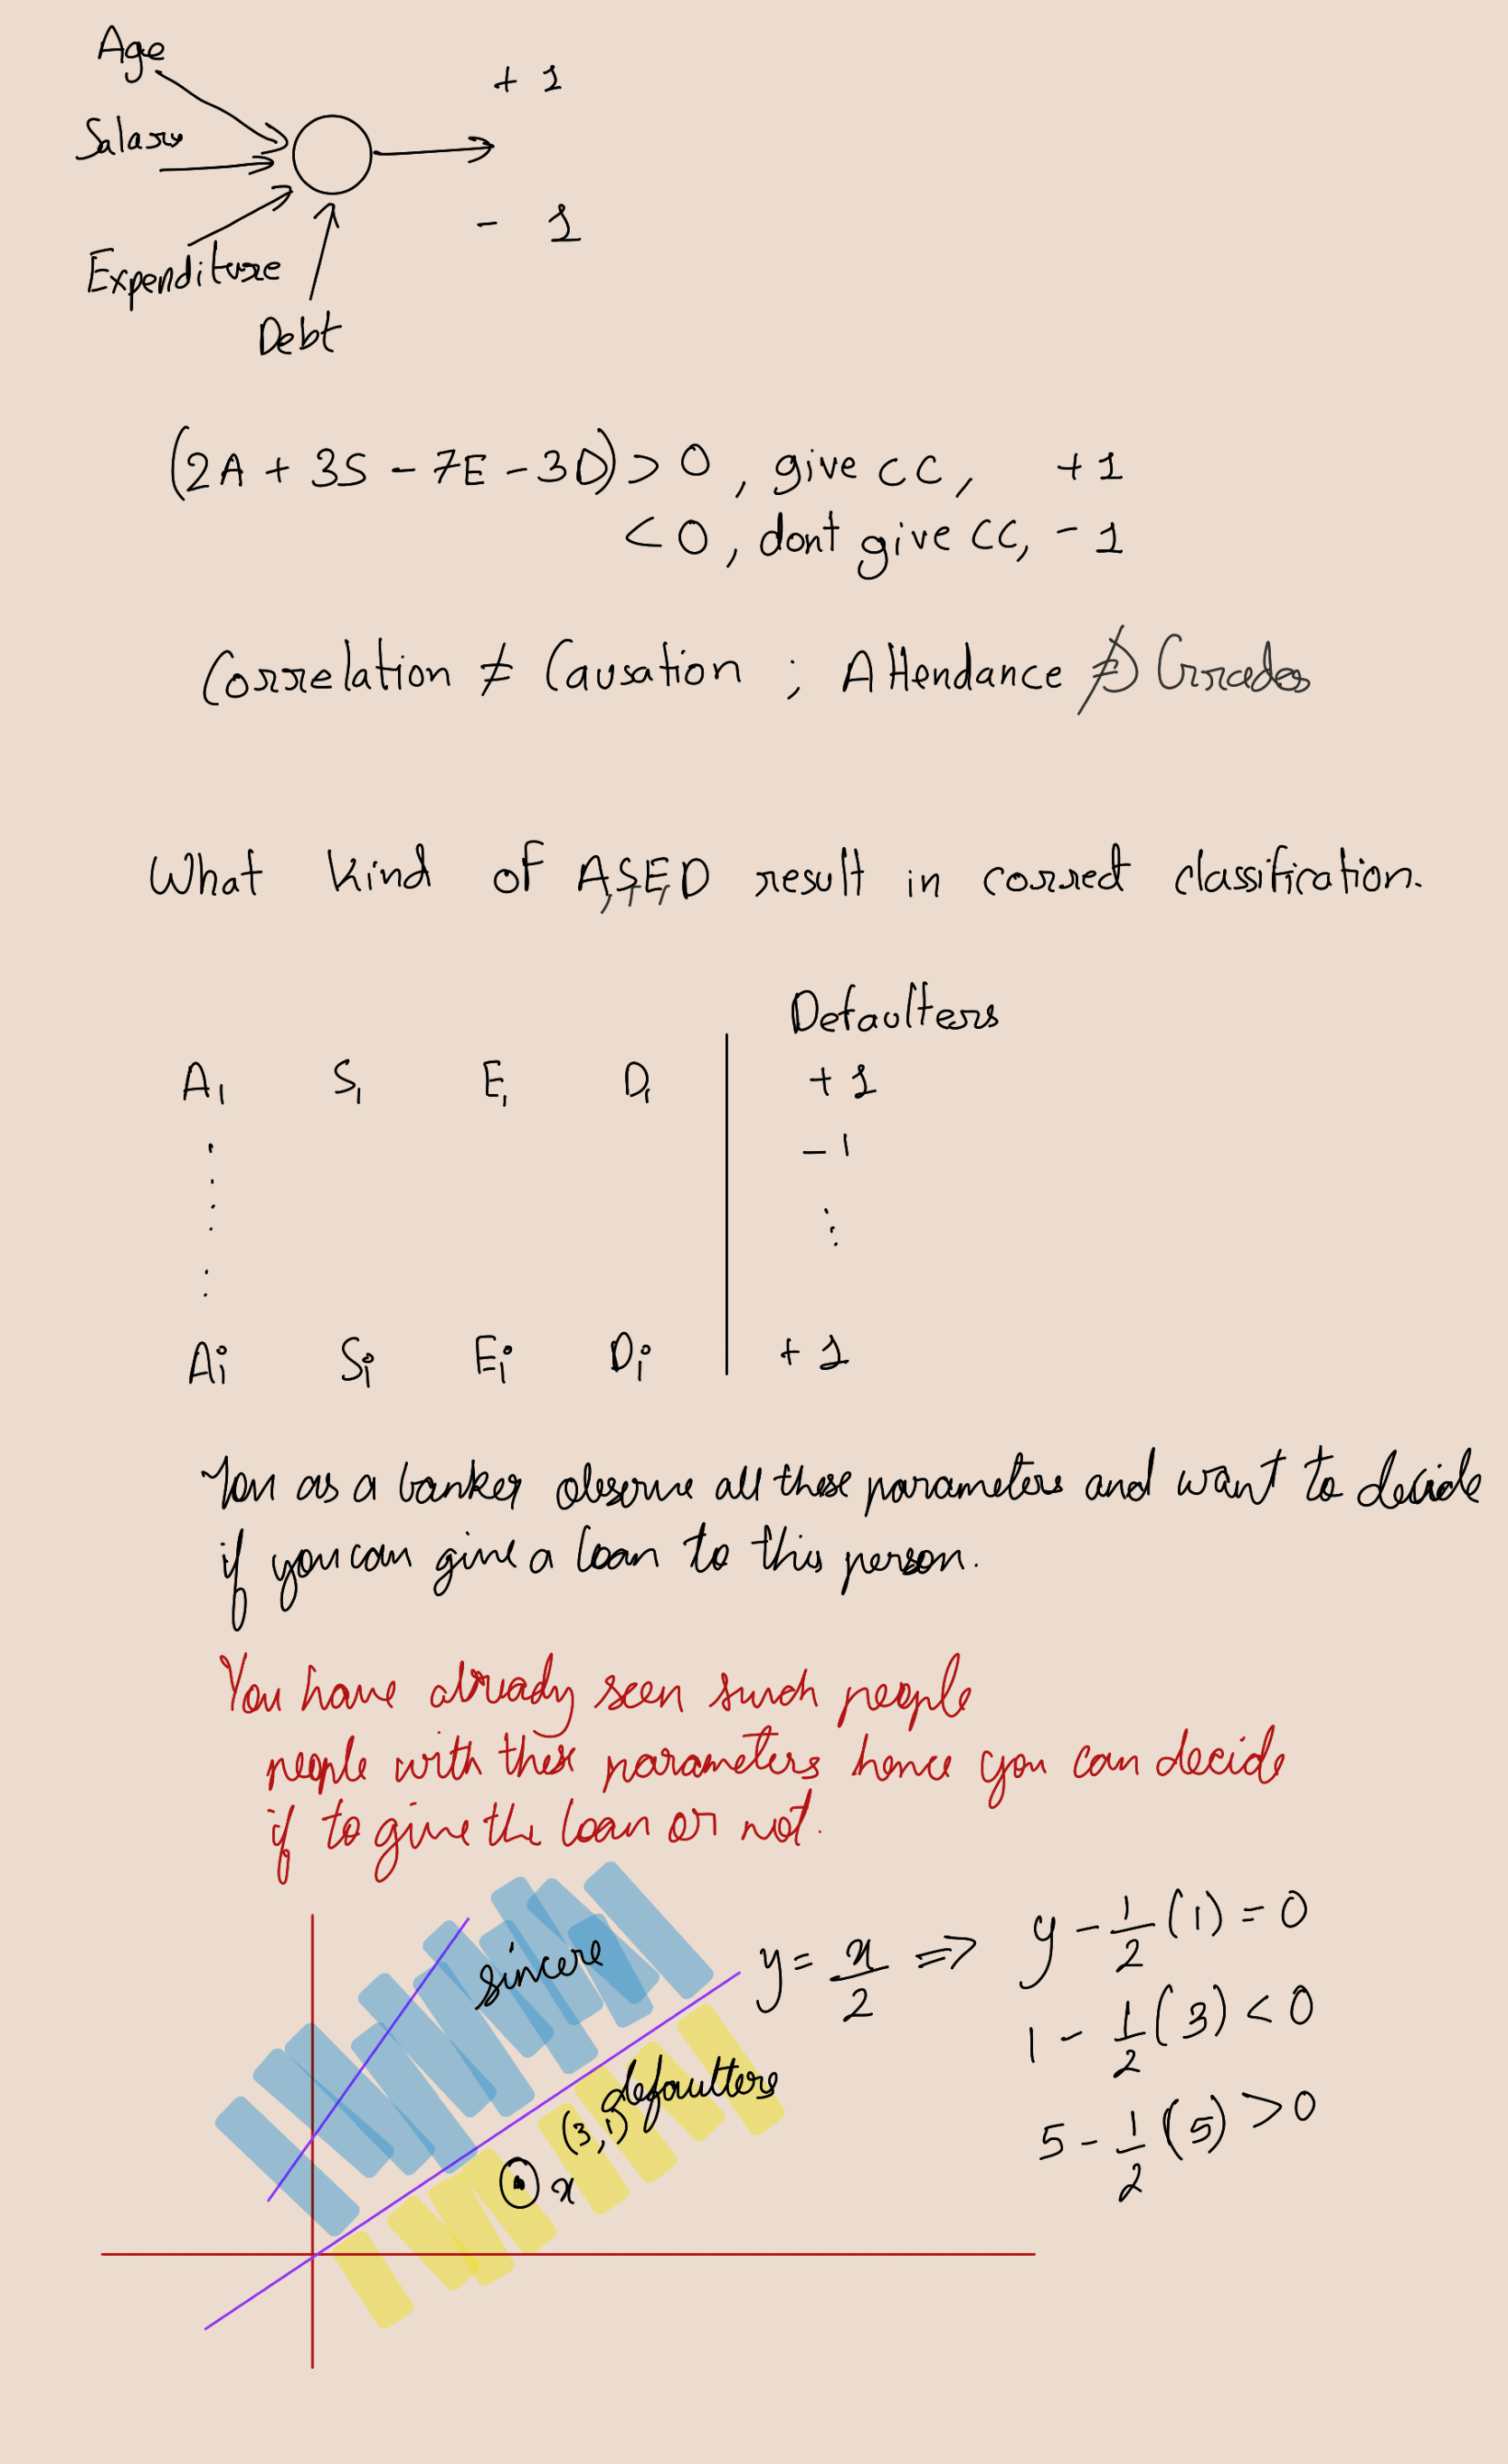 Age
+ 1
Salary
- 1
Expenditure
Debt
(2A + 3S - 7E - 3D) > 0, give CC, +1
< 0, dont give CC, - 1
Correlation ≠ Causation ; Attendance ⇏ Grades
What kind of A,S,E,D result in correct classification.
Defaulters
A₁ S₁ E₁ D₁ + 1
- 1
Ai Si Ei Di + 1
You as a banker observe all these parameters and want to decide
if you can give a loan to this person.
You have already seen such people
people with these parameters hence you can decide
if to give the loan or not.
sincere
y = x/2 ⇒ y - 1/2 (1) = 0
1 - 1/2 (3) < 0
defaulters
(3,1)
5 - 1/2 (5) > 0
x